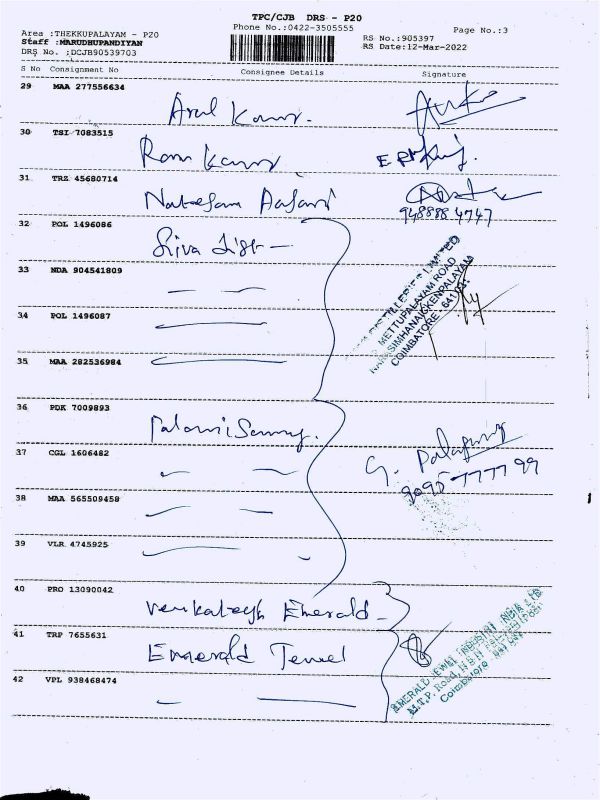 TPC/CJB DRS - P20
Area :THEKKUPALAYAM - P20
Phone No.:0422-3505555
Page No.:3
Staff :MARUDHUPANDIYAN
RS No.:905397
DRS No. :DCJB90539703
RS Date:12-Mar-2022
S No Consignment No Consignee Details Signature
29 MAA 277556634
Arul Kumar.
30 TSI 7083515
Ram Kumar
31 TRZ 45680714
Natesan
948888 4747
32 POL 1496086
Siva
33 NDA 904541809
34 POL 1496087
35 MAA 282536984
DISTILLERIES LIMITED
METTUPALAYAM ROAD
NARASIMHANAICKENPALAYAM
COIMBATORE - 641 031
36 PDK 7009893
PalaniSamy.
37 CGL 1606482
G. Palani
9095 777799
38 MAA 565509458
39 VLR 4745925
40 PRO 13090042
Venkatesh Emerald -
41 TRP 7655631
Emerald Jewel
42 VPL 938468474
EMERALD JEWEL INDUSTRY INDIA LTD
M.T.P. Road,
Coimbatore